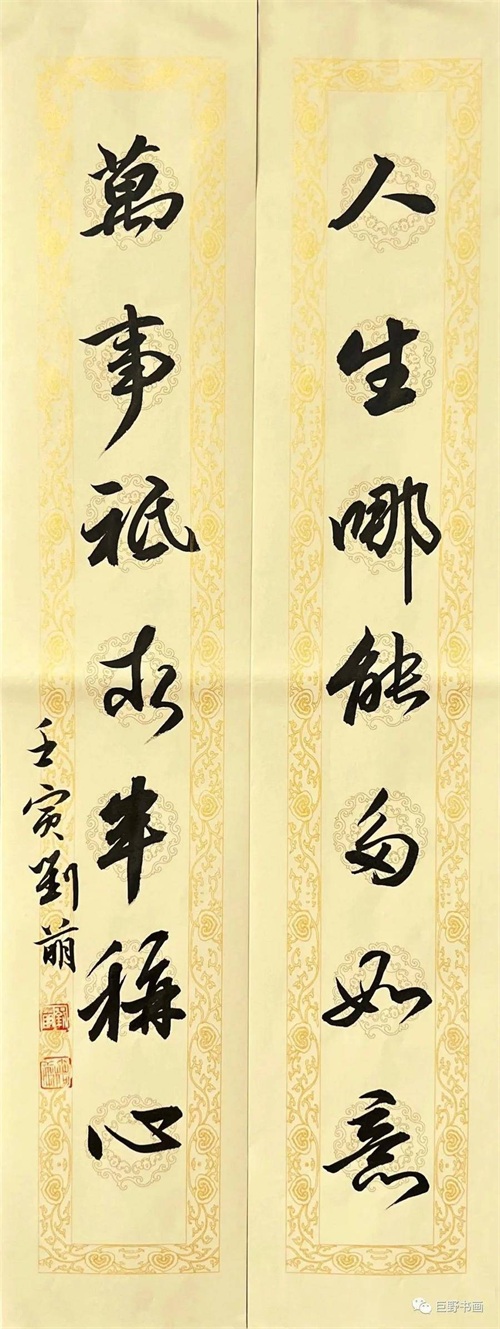 人生哪能多如意
萬事祗求半稱心
壬寅劉萌
巨野书画